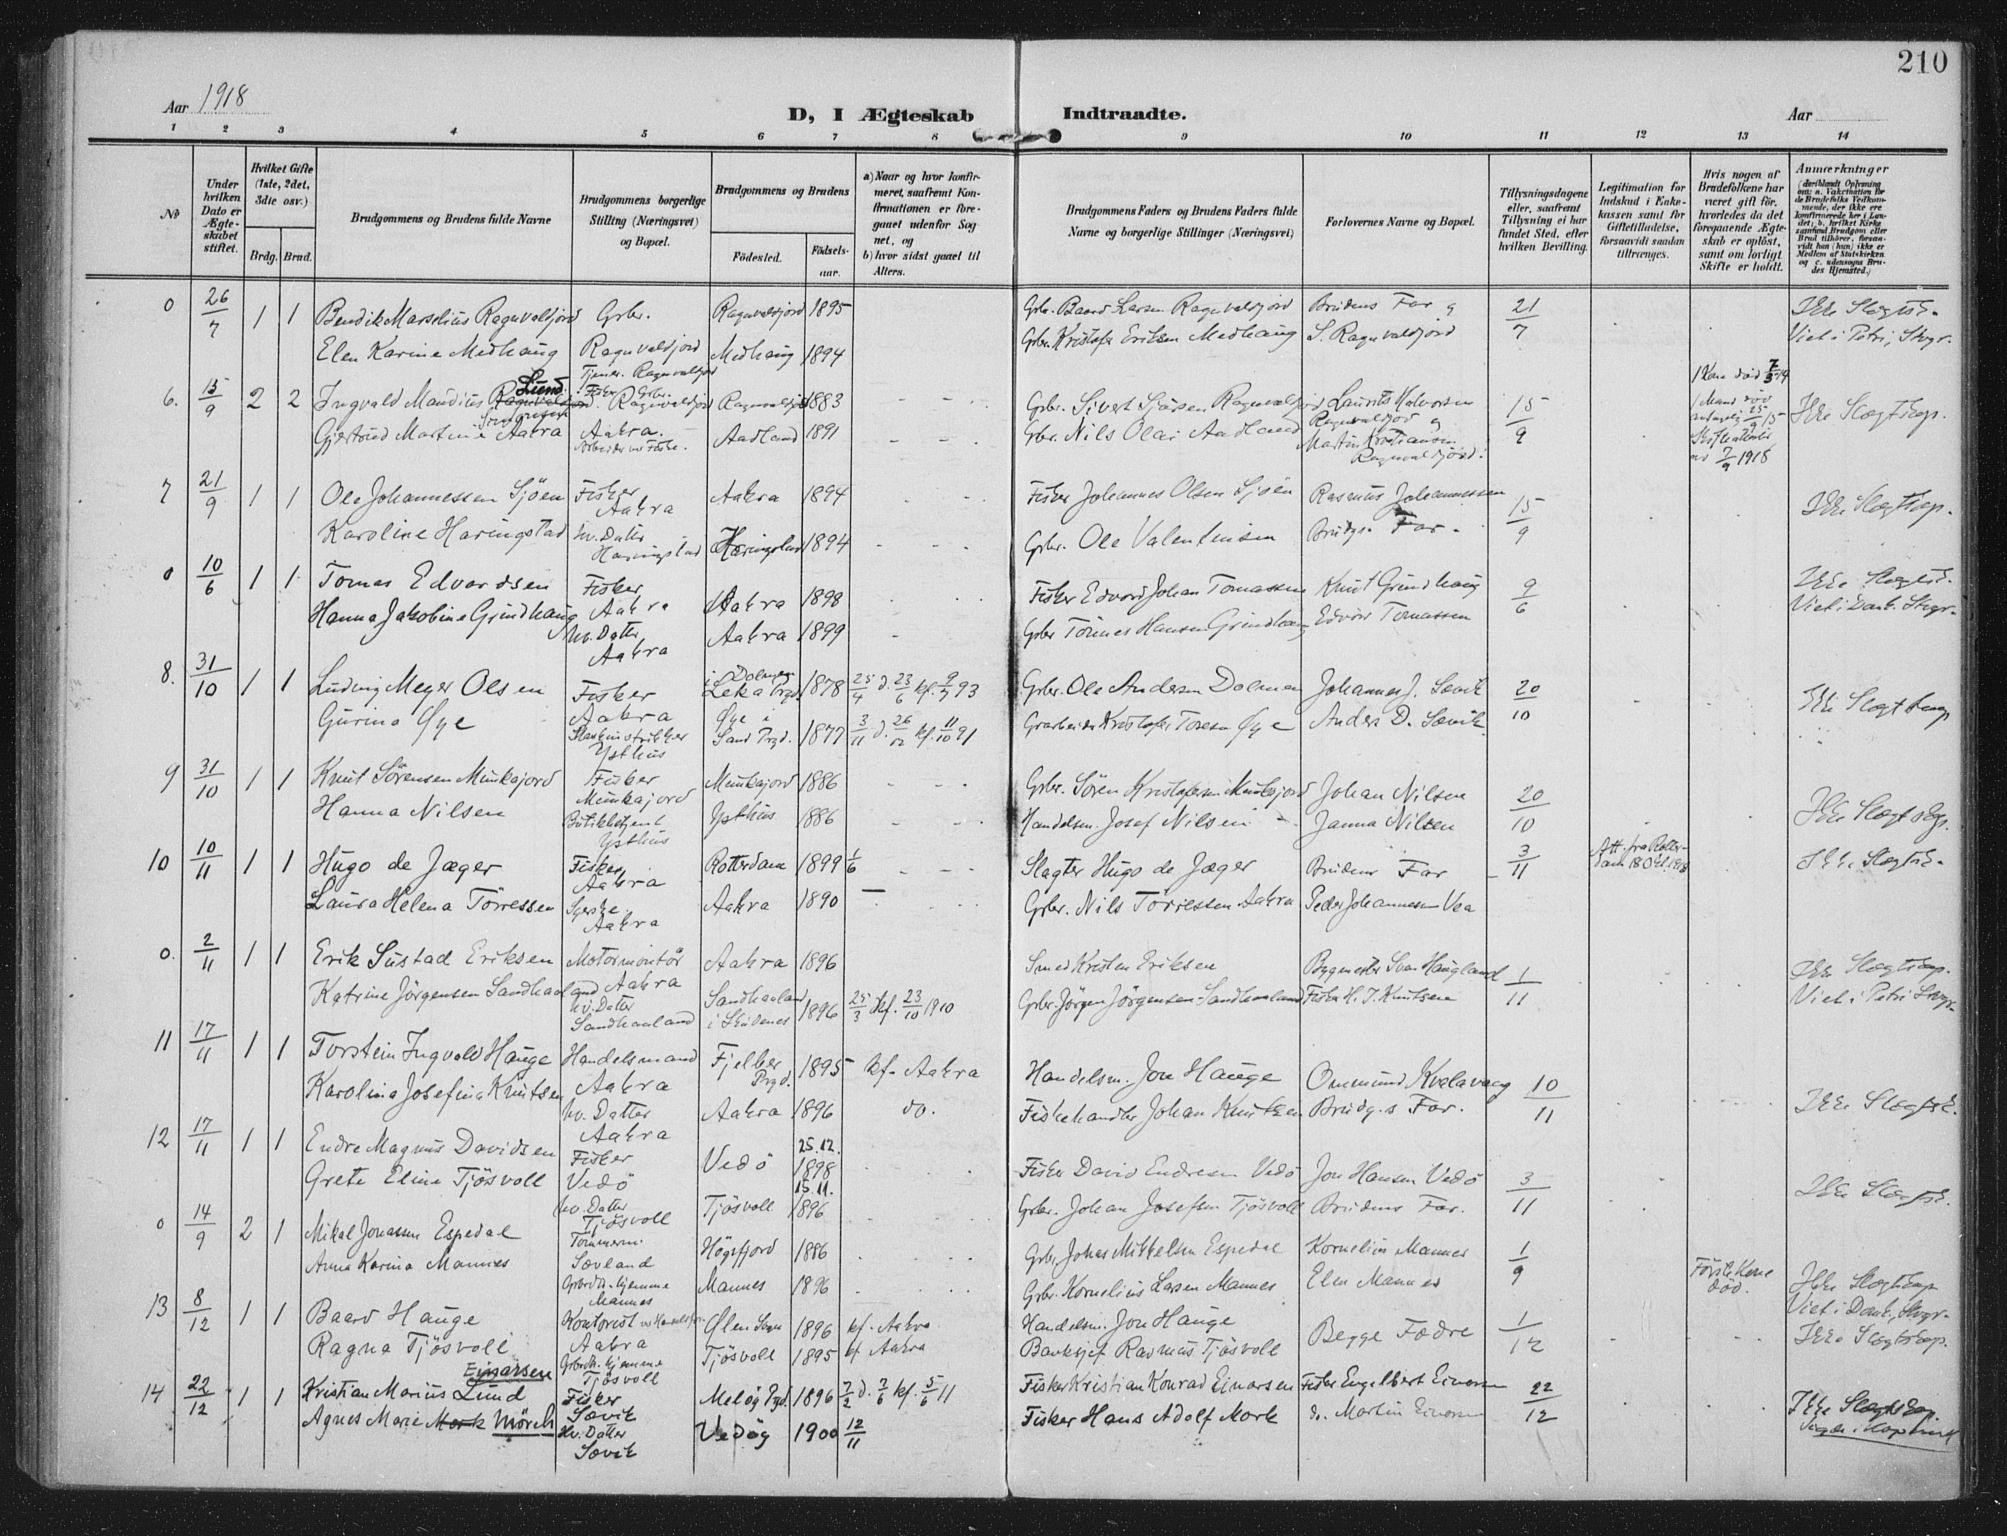 210
Aar 1918
D, I Ægteskab Indtraadte.
Aar
1 2 3 4 5 6 7 8 9 10 11 12 13 14
No
Under hvilken Dato er Ægteskabet stiftet.
Hvilket Gifte (1ste, 2det, 3die osv.)
Brdg. Brud.
Brudgommens og Brudens fulde Navne
Brudgommens borgerlige Stilling (Næringsvei) og Bopæl.
Brudgommens og Brudens
Födested. Födselsaar.
a) Naar og hvor konfirmeret, saafremt Konfirmationen er foregaaet udenfor Sognet, og
b) hvor sidst gaaet til Alters.
Brudgommens Faders og Brudens Faders fulde Navne og borgerlige Stillinger (Næringsvei)
Forlovernes Navne og Bopæl.
Tillysningsdagene eller, saafremt Tillysning ei har fundet Sted, efter hvilken Bevilling.
Legitimation for Indskud i Enkekassen samt for Giftetilladelse, forsaavidt saadan tiltrænges.
Hvis nogen af Brudefolkene har været gift för, hvorledes da det foregaaende Ægteskab er oplöst, samt om lovligt Skifte er holdt.
Anmærkninger
0 26/7 1 1 Bendik Marselius Ragnvaldsjord Grbr. Ragnvaldsjord 1895 Grbr. Baard Larsen Ragnvaldsjord Brudens Far og 21/7 Ikke Slegtsk.
Elen Karine Medhaug Ragnvaldsjord Medhaug 1894 Grbr. Kristofer Eriksen Medhaug S. Ragnvaldsjord Viet i Petri, Stvgr.
6. 15/9 2 2 Ingvald Mandius Lund Fisker Grbr. Ragnvaldsjord 1883 Grbr. Sivert Sjursen Ragnvaldsjord Laurits Halvorsen 15/9 1 Kone död 7/3 14 Ikke Slegtskap.
Gjertrud Martine Aakra Aakra. Aadland 1891 Grbr. Nils Olai Aadland Ragnvaldsjord og Martin Kristiansen Ragnvaldsjord.
7 21/9 1 1 Ole Johannessen Sjöen Fisker Aakra Aakra 1894 Fisker Johannes Olsen Sjöen Rasmus Johannessen 15/9 Ikke Slegtskap.
Karoline Haringstad hv. Datter Haringstad Haringstad 1894 Grbr. Ole Valentinsen Brudgs. Far.
0 10/6 1 1 Tomas Edvardsen Fisker Aakra Aakra 1898 Fisker Edvard Johan Tomassen Knut Grindhaug 9/6 Ikke Slegtsk.
Hanna Jakobine Grindhaug hv. Datter Aakra Aakra 1899 Grbr. Tönnes Hansen Grindhaug Edvard Tomassen Viet i Dank. Stvgr.
8. 31/10 1 1 Ludvig Meyer Olsen Fisker Aakra i Dolmen Leka Prgd. 1878 25/4 d. 23/6 kf. 9/7 93 Grbr. Ole Andersen Dolmen Johannes J. Sævik 20/10 Ikke Slegtskap
Gurina Øye Ysthus Øye i Sand Prgd. 1877 3/11 d. 26/12 kf. 11/10 91 Grarbeider Kristofer Toresen Øye Anders D. Sævik
9 31/10 1 1 Knut Sörensen Munkajord Fisker Munkajord Munkajord 1886 Grbr. Sören Kristofersen Munkajord Johan Nilsen 20/10 Ikke Slegtskap.
Hanna Nilsen Butikbetjent Ysthus Ysthus 1886 Handelsm. Josef Nilsen Janna Nilsen
10 10/11 1 1 Hugo de Jæger Fisker Aakra Rotterdam 1899 1/6 Slagter Hugo de Jæger Brudens Far 3/11 Att. fra Rotterdam 18 Okt. 1918 Ikke Slegtsk.
Laura Helena Törressen Syerske Aakra Aakra 1890 Grbr. Nils Törressen Aakra Peder Johannesen Vea
0. 2/11 1 1 Erik Sustad Eriksen Motormontör Aakra Aakra 1896 Smed Kristen Eriksen Bygmester Sven Haugland 1/11 Ikke Slegtskap.
Katrine Jörgensen Sandhaaland hv. Datter Sandhaaland Sandhaaland i Skudenes 1896 25/3 kf. 23/10 1910 Grbr. Jörgen Jörgensen Sandhaaland Fisker H. J. Knutsen Viet i Petri Stvgr.
11 17/11 1 1 Torstein Ingvald Hauge Handelsmand Aakra Fjelber Prgd. 1895 kf. Aakra Handelsm. Jon Hauge Ommund Kvalavaag 10/11 Ikke Slegtsk.
Karolina Josefina Knutsen hv. Datter Aakra Aakra 1896 do. Fiskehandler Johan Knutsen Brudg.s Far.
12 17/11 1 1 Endre Magnus Davidsen Fisker Vedö Vedö 25.12. 1898 Fisker David Endresen Vedö Jon Hansen Vedö 3/11 Ikke Slegtsk.
Grete Eline Tjösvoll hv. Datter Tjösvoll Tjösvoll 15.11. 1896 Grbr. Johan Josefsen Tjösvoll Brudens Far.
0 14/9 2 1 Mikal Jonassen Espedal Tömmerm. Sævland Högsfjord 1886 Grbr. Johas Mikkelsen Espedal Kornelius Mannes 1/9 Förste Kone död. Ikke Slegtskap
Anna Karina Mannes Grbrdtr. hjemme Mannes Mannes 1896 Grbr. Kornelius Larsen Mannes Elen Mannes Viet i Dank. Stvgr.
13 8/12 1 1 Baard Hauge Kontorist Aakra Ølen Sogn 1896 kf. Aakra Handelsm. Jon Hauge Begge Fædre 1/12 Ikke Slegtskap.
Ragna Tjösvoll Grbrdtr. hjemme Tjösvoll Tjösvoll 1895 kf Aakra Banksjef Rasmus Tjösvoll
14 22/12 1 1 Kristian Marius Lund Einarsen Fisker Sævik Melöy Prgd. 1896 7/2 d. 7/6 kf. 5/6 11 Fisker Kristian Konrad Einarsen Fisker Engelbert Einarsen 22/12 Ikke Slegtskap.
Agnes Marie Mork Mörch Hv. Datter Sævik Vedöy 1900 12/11 Fisker Hans Adolf Mork do. Martin Einarsen